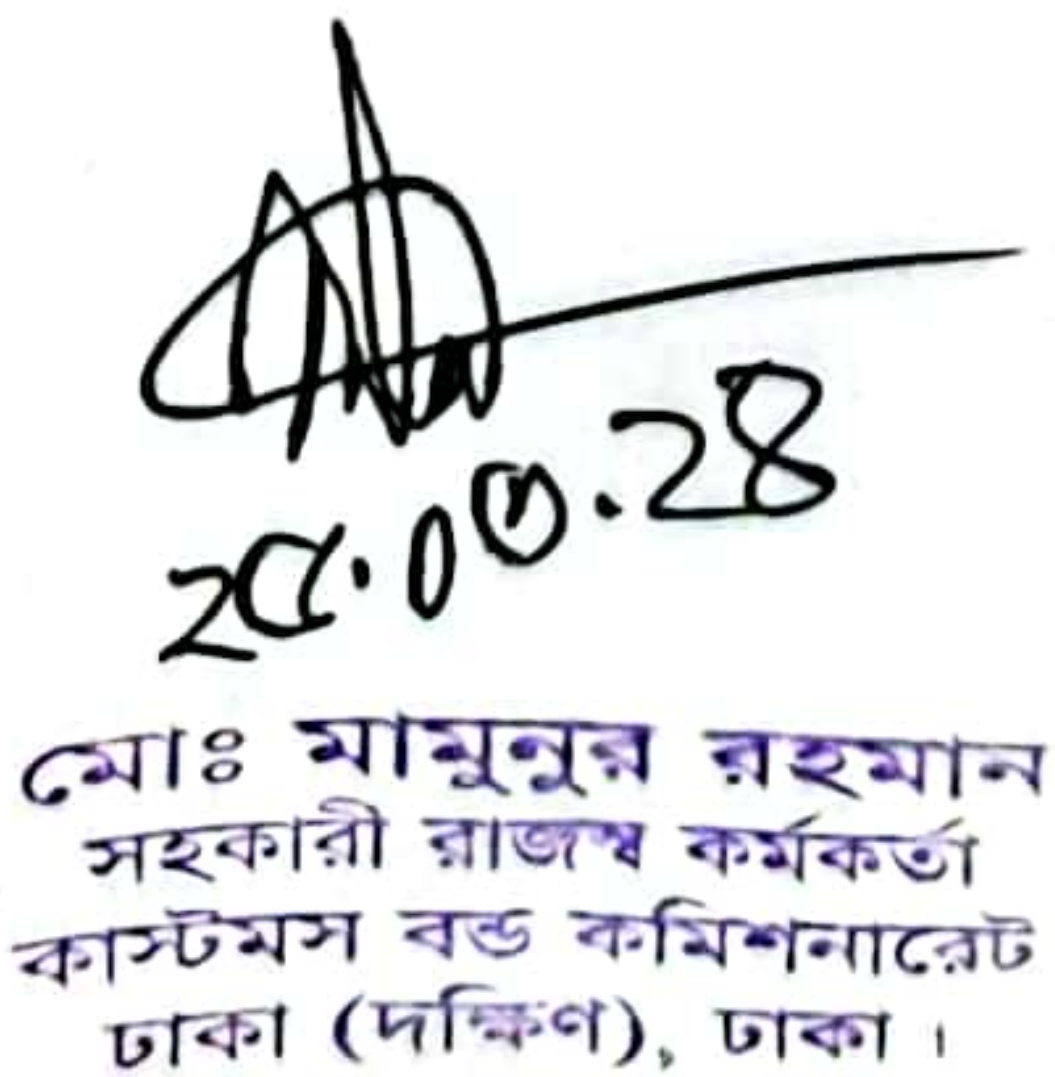 ২৫.০৩.২৪
মোঃ মামুনুর রহমান
সহকারী রাজস্ব কর্মকর্তা
কাস্টমস বন্ড কমিশনারেট
ঢাকা (দক্ষিণ), ঢাকা ।